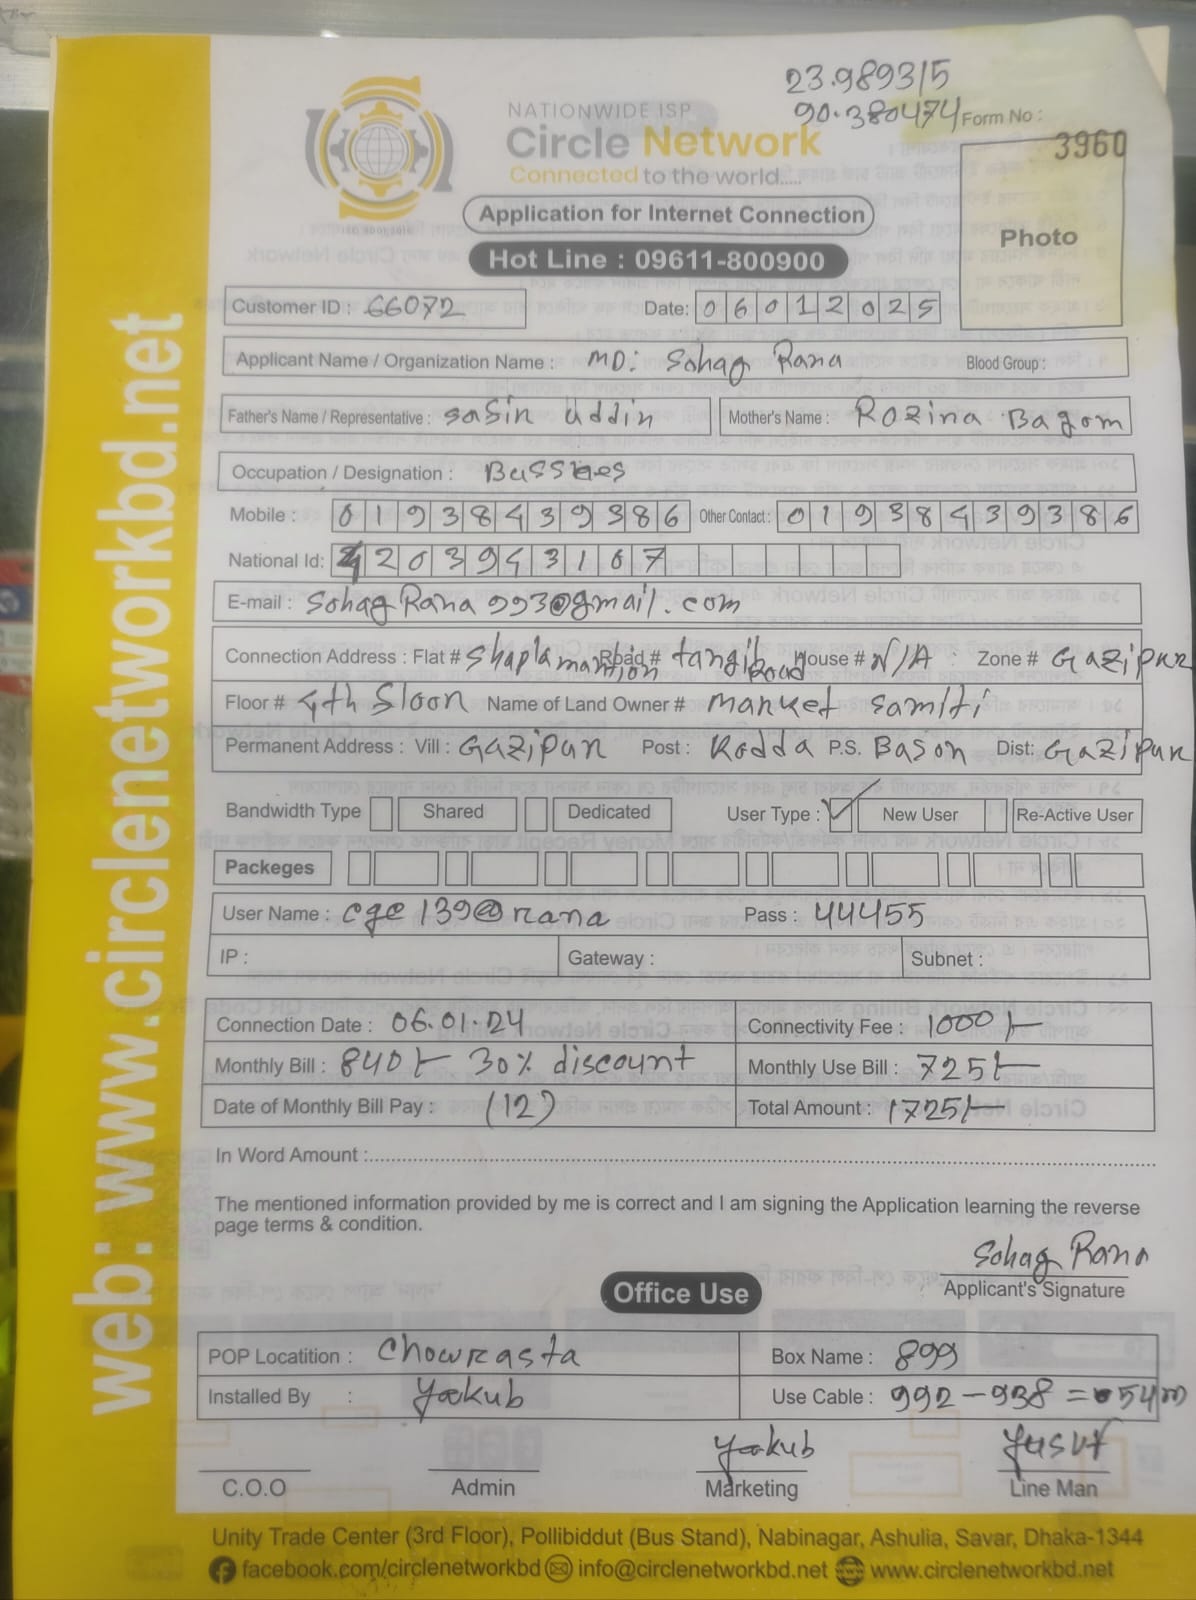 23.989315
90.380474
NATIONWIDE ISP
Circle Network
Connected to the world.....
Form No :
3960
Photo
Application for Internet Connection
Hot Line : 09611-800900
Customer ID : 66072 Date: 06012025
Applicant Name / Organization Name : MD: Sohag Rana Blood Group :
Father's Name / Representative : sasin uddin Mother's Name : Rozina Bagom
Occupation / Designation :
Mobile : 01938439386 Other Contact : 01938439386
National Id: 4203943107
E-mail : SohagRana993@gmail.com
Connection Address : Flat # Shapla mantion Road # tangil Road House # N/A Zone # Gazipur
Floor # 4th Sloor Name of Land Owner # market samiti
Permanent Address : Vill : Gazipur Post : Kodda P.S. Bason Dist: Gazipur
Bandwidth Type Shared Dedicated User Type : New User Re-Active User
Packeges
User Name : cgc139@rana Pass : 44455
IP : Gateway : Subnet :
Connection Date : 06.01.24 Connectivity Fee : 1000/-
Monthly Bill : 840/- 30% discount Monthly Use Bill : 725/-
Date of Monthly Bill Pay : (12) Total Amount : 1725/-
In Word Amount :
The mentioned information provided by me is correct and I am signing the Application learning the reverse
page terms & condition.
Sohag Rana
Applicant's Signature
Office Use
POP Locatition : Chowrasta Box Name : 899
Installed By : Yaakub Use Cable : 992 - 938 = 54m
Yaakub Yusuf
C.O.O Admin Marketing Line Man
Unity Trade Center (3rd Floor), Pollibiddut (Bus Stand), Nabinagar, Ashulia, Savar, Dhaka-1344
facebook.com/circlenetworkbd info@circlenetworkbd.net www.circlenetworkbd.net
web: www.circlenetworkbd.net